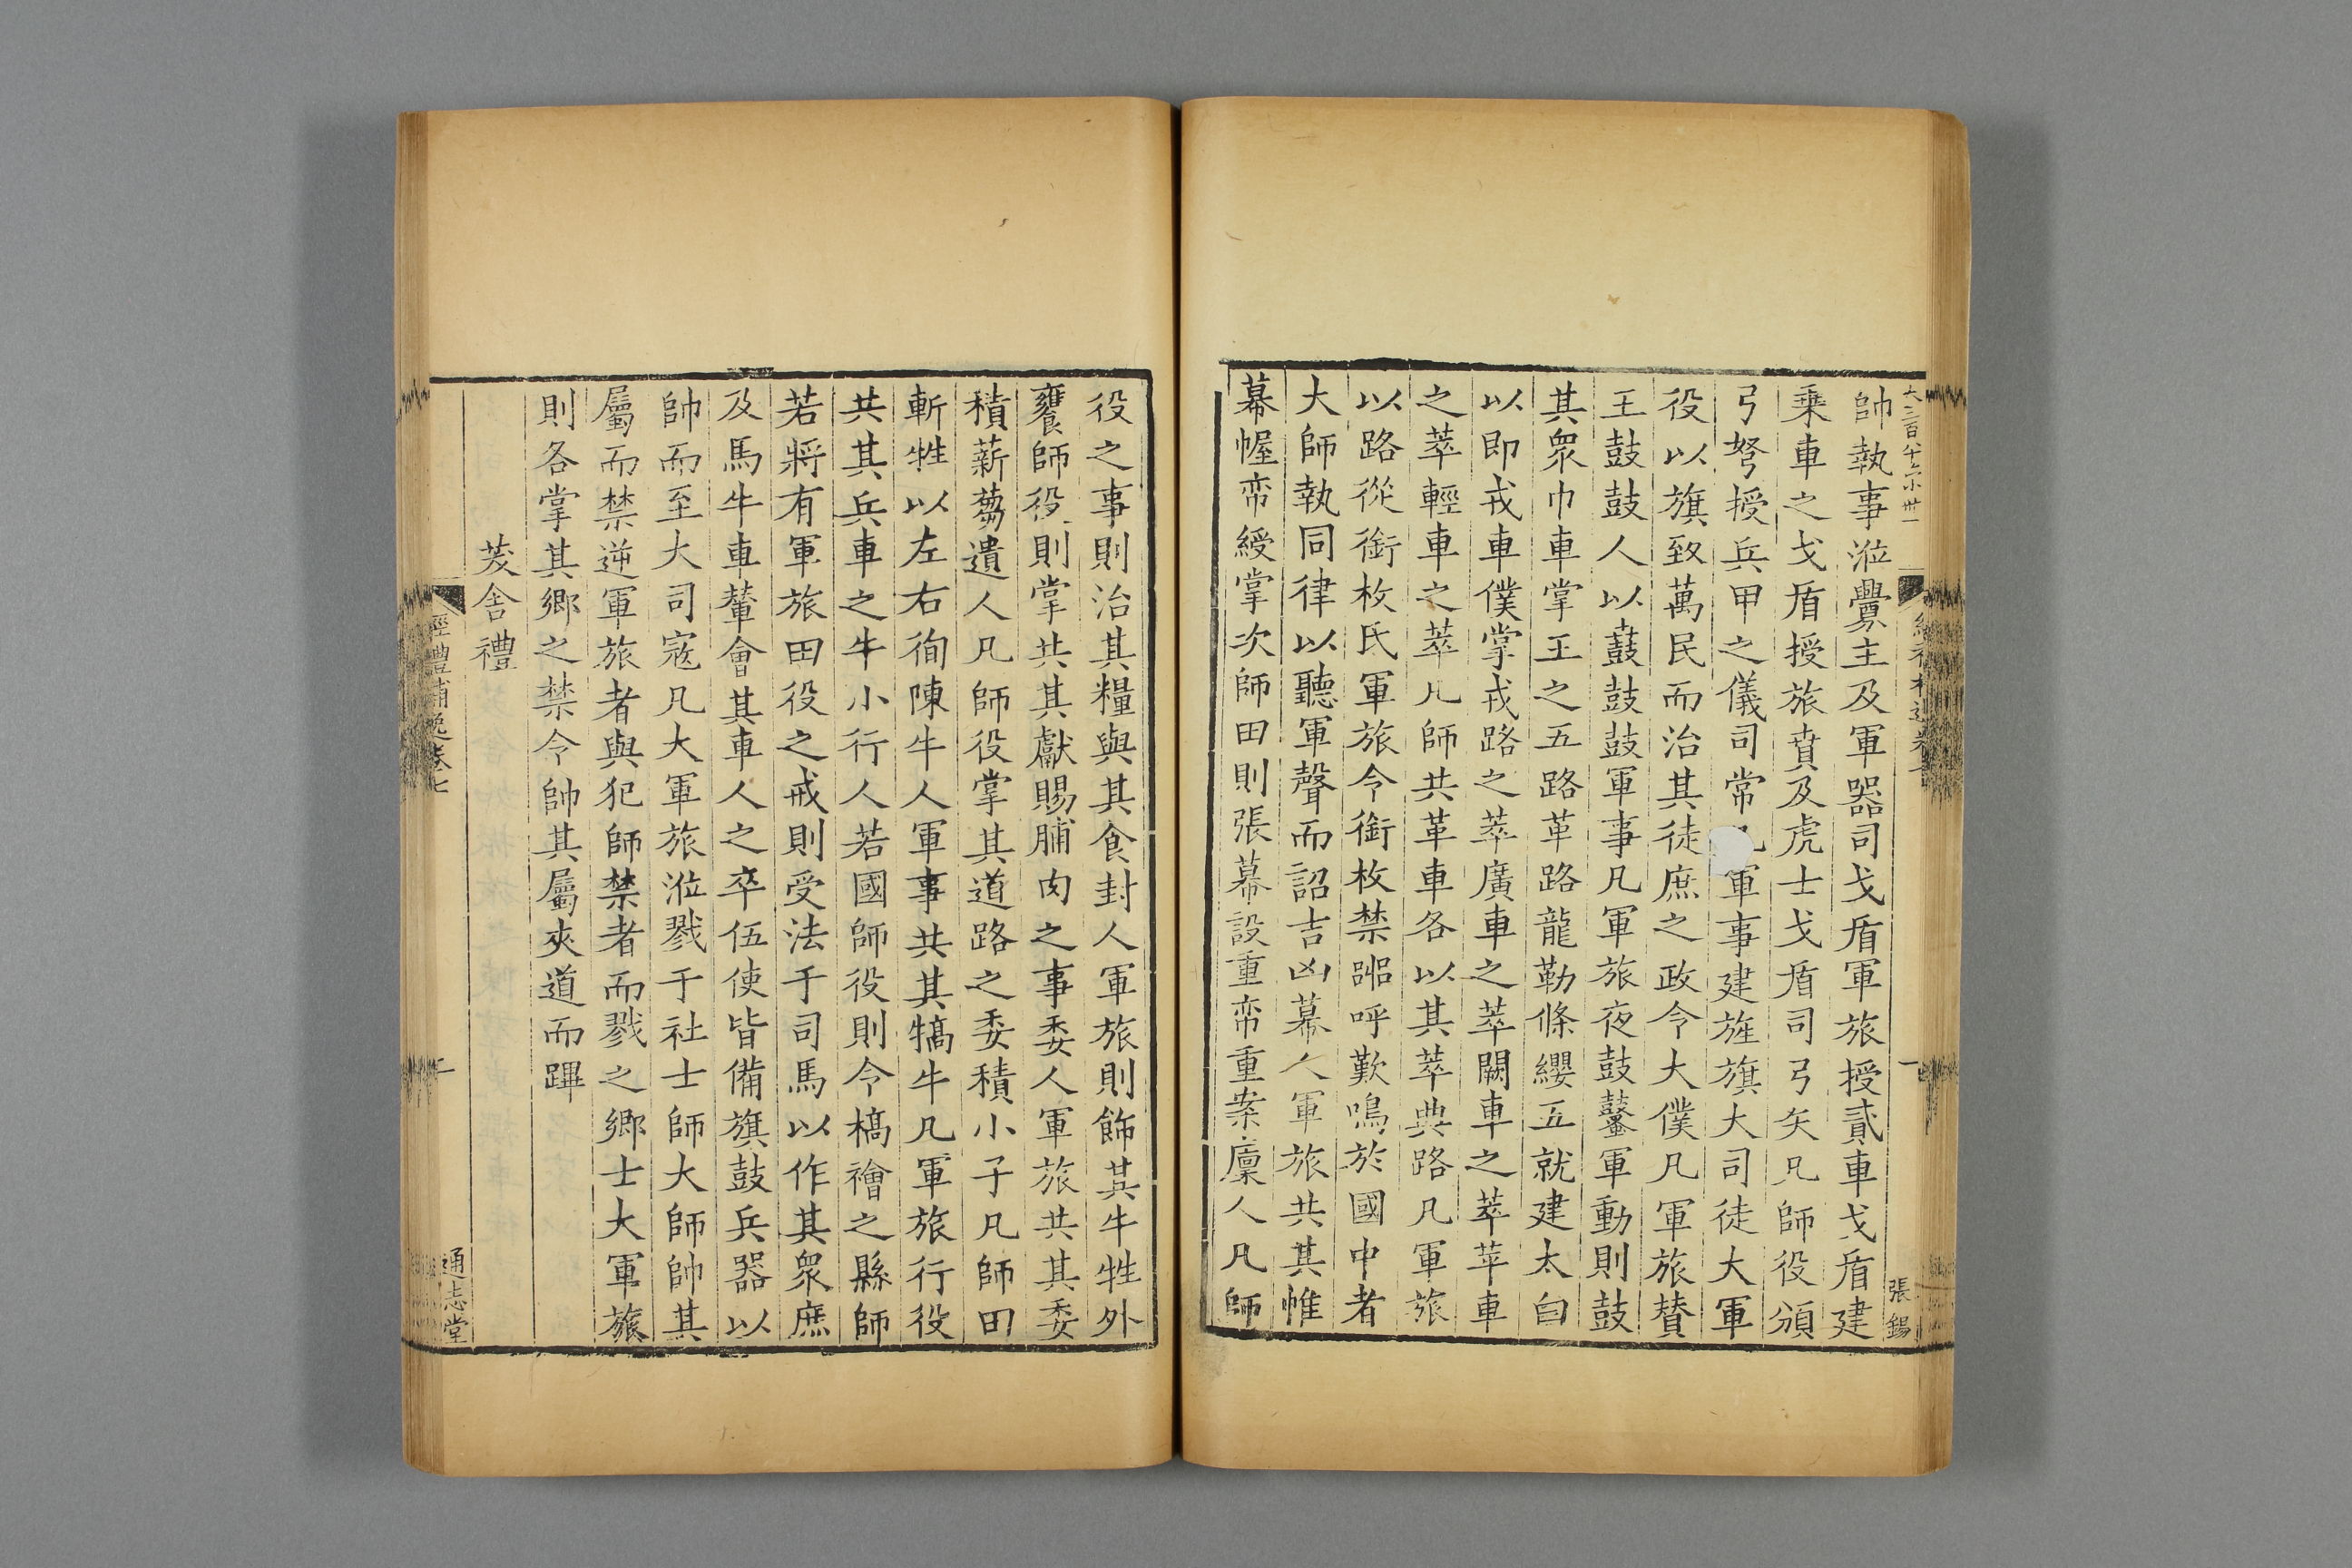 帥執事涖釁主及軍器司戈盾軍旅授貳車戈盾建
乗車之戈盾授旅賁及虎士戈盾司弓矢凡師役頒
弓弩授兵甲之儀司常軍事建旌旗大司徒大軍
役以旗致萬民而治其徒庶之政令大僕凡軍旅賛
王鼓鼓人以鼖鼓鼓軍事凡軍旅夜鼓鼜軍動則鼓
其衆巾車掌王之五路革路龍勒條纓五就建太白
以即戎車僕掌戎路之萃廣車之萃闕車之萃苹車
之萃輕車之萃凡師共革車各以其萃典路凡軍旅
以路從銜枚氏軍旅令銜枚禁嘂呼歎鳴於國中者
大師執同律以聽軍聲而詔吉凶幕人軍旅共其帷
幕幄帟綬掌次師田則張幕設重帟重案廩人凡師
張錫
役之事則治其糧與其食封人軍旅則飾其牛牲外
饔師役則掌共其獻賜脯肉之事委人軍旅共其委
積薪芻遺人凡師役掌其道路之委積小子凡師田
斬牲以左右徇陳牛人軍事共其犒牛凡軍旅行役
共其兵車之牛小行人若國師役則令槁禬之縣師
若將有軍旅田役之戒則受法于司馬以作其衆庶
及馬牛車輦會其車人之卒伍使皆備旗鼓兵器以
帥而至大司寇凡大軍旅涖戮于社士師大師帥其
屬而禁逆軍旅者與犯師禁者而戮之鄉士大軍旅
則各掌其鄉之禁令帥其屬夾道而蹕
茇舍禮
經禮補逸卷七
二
通志堂